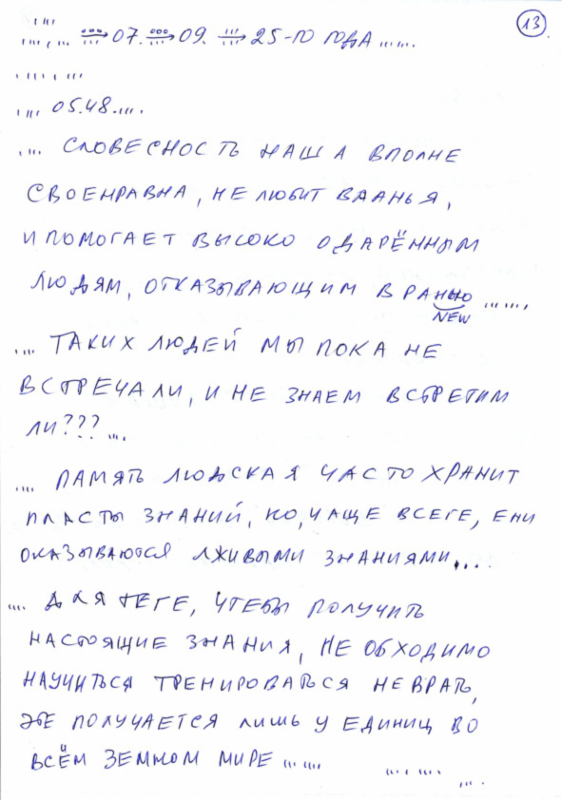 13
..... ⇒ 07. ⇒ 09. ⇒ 25-ГО ГОДА .....
.... 05.48....
.... СЛОВЕСНОСТЬ НАША ВПОЛНЕ
СВОЕНРАВНА, НЕ ЛЮБИТ ВРАНЬЯ,
И ПОМОГАЕТ ВЫСОКО ОДАРЁННЫМ
ЛЮДЯМ, ОТКАЗЫВАЮЩИМ ВРАНЬЮ ......
NEW
.... ТАКИХ ЛЮДЕЙ МЫ ПОКА НЕ
ВСТРЕЧАЛИ, И НЕ ЗНАЕМ ВСТРЕТИМ
ЛИ???....
.... ПАМЯТЬ ЛЮДСКАЯ ЧАСТО ХРАНИТ
ПЛАСТЫ ЗНАНИЙ, НО, ЧАЩЕ ВСЕГЕ, ЕНИ
ОКАЗЫВАЮТСЯ ЛЖИВЫМИ ЗНАНИЯМИ....
.... ДЛЯ ТЕГЕ, ЧТЕБЫ ПОЛУЧИТЬ
НАСТОЯЩИЕ ЗНАНИЯ, НЕОБХОДИМО
НАУЧИТЬСЯ ТРЕНИРОВАТЬСЯ НЕ ВРАТЬ,
ЭТЕ ПОЛУЧАЕТСЯ ЛИШЬ У ЕДИНИЦ ВО
ВСЁМ ЗЕМНОМ МИРЕ ......